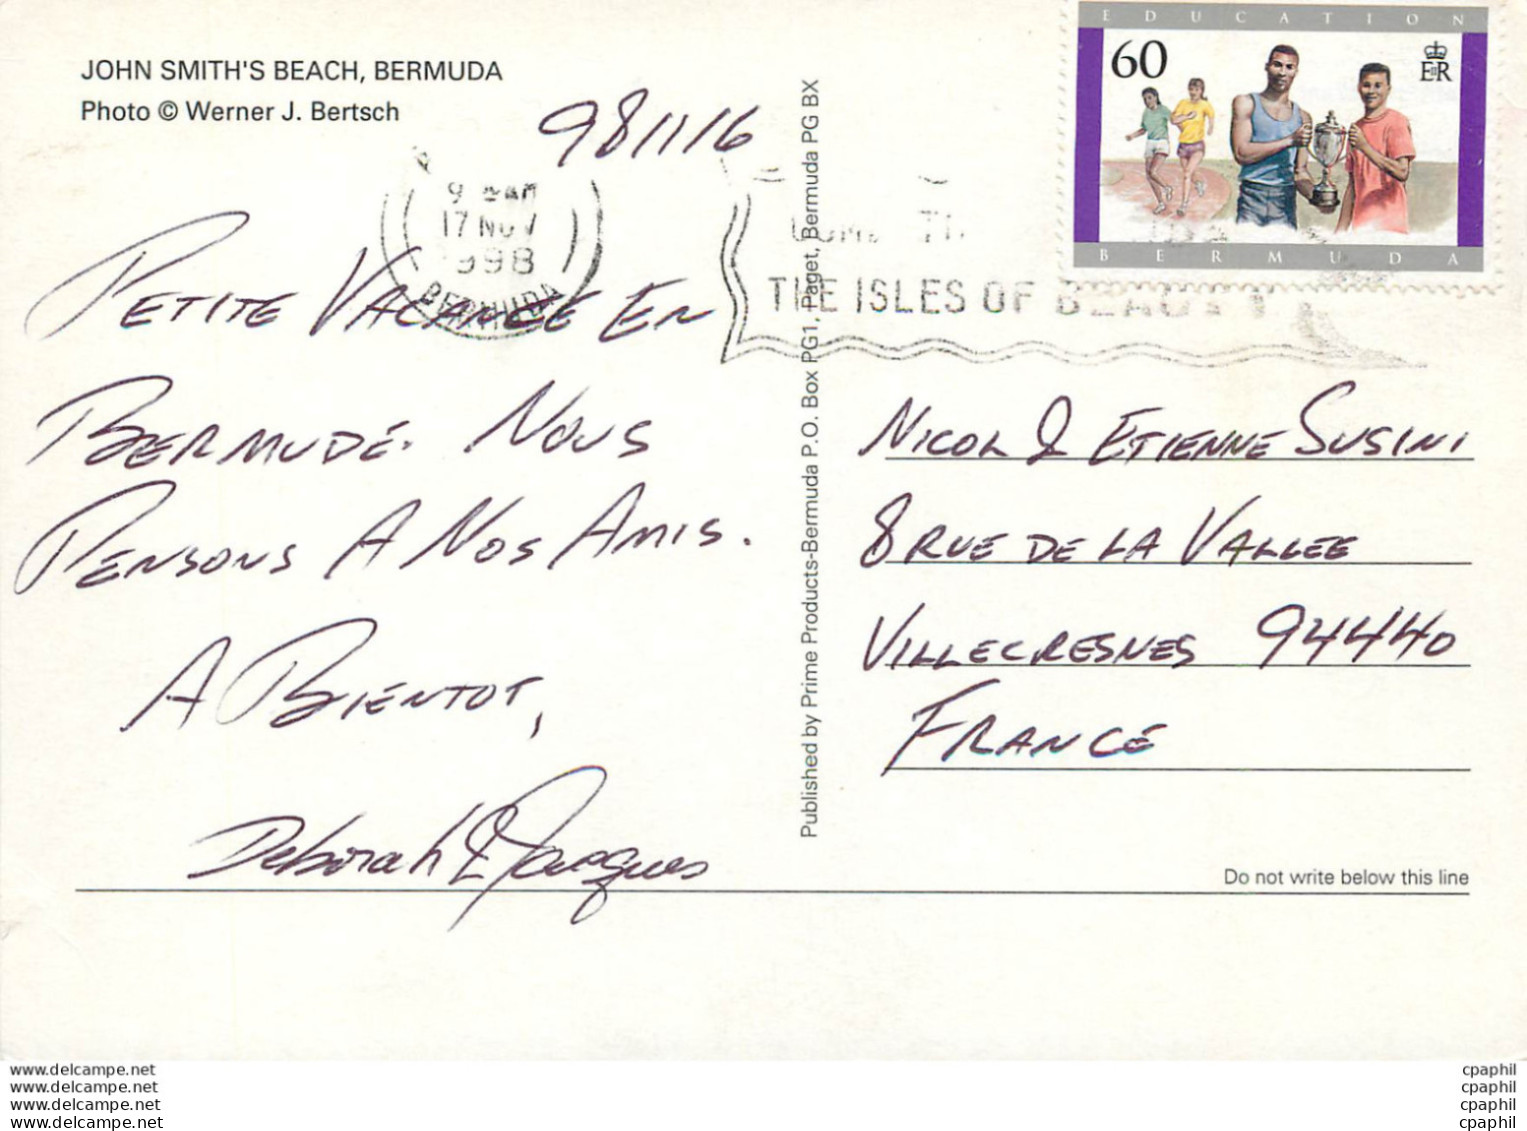 JOHN SMITH'S BEACH, BERMUDA
Photo © Werner J. Bertsch
98/11/16
17 NOV
1998
BERMUDA
THE ISLES OF BEAUTY
EDUCATION
60
EIIR
BERMUDA
PETITE VACANCE EN
BERMUDE. NOUS
PENSONS A NOS AMIS.
A BIENTOT,
Deborah & Jacques
Published by Prime Products-Bermuda P.O. Box PG1, Paget, Bermuda PG BX
NICOL & ETIENNE SUSINI
8 RUE DE LA VALLEE
VILLECRESNES 94440
FRANCE
Do not write below this line
www.delcampe.net
www.delcampe.net
www.delcampe.net
www.delcampe.net
cpaphil
cpaphil
cpaphil
cpaphil